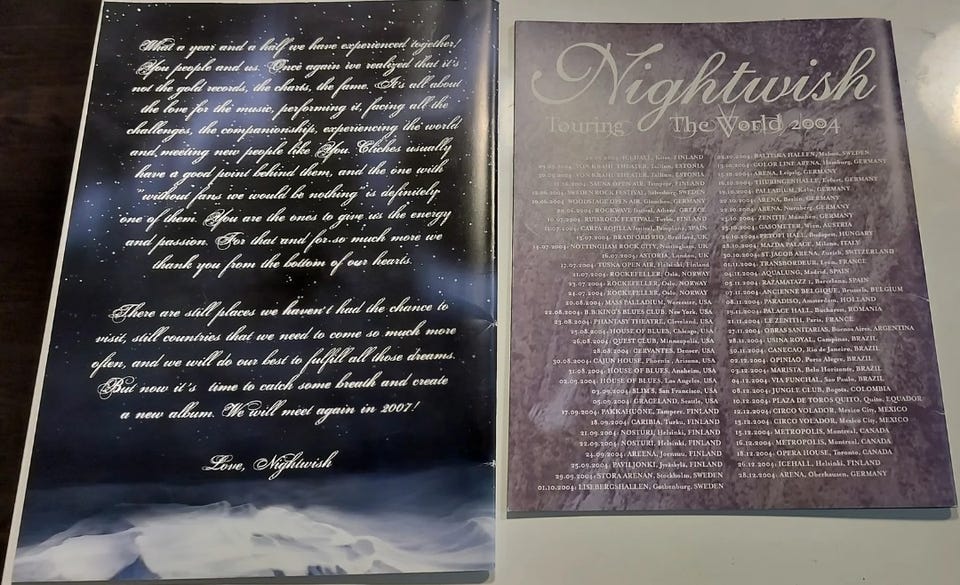 What a year and a half we have experienced together!
You people and us. Once again we realized that it's
not the gold records, the charts, the fame. It's all about
the love for the music, performing it, facing all the
challenges, the companionship, experiencing the world
and meeting new people like You. Cliches usually
have a good point behind them, and the one with
"without fans we would be nothing" is definitely
one of them. You are the ones to give us the energy
and passion. For that and for so much more we
thank you from the bottom of our hearts.
There are still places we haven't had the chance to
visit, still countries that we need to come so much more
often, and we will do our best to fulfill all those dreams.
But now it's time to catch some breath and create
a new album. We will meet again in 2007!
Love, Nightwish
Nightwish
Touring The World 2004
ICEHALL, Kitee, FINLAND
VON KRAHL THEATER, Tallinn, ESTONIA
VON KRAHL THEATER, Tallinn, ESTONIA
SAUNA OPEN AIR, Tampere, FINLAND
SWEDEN ROCK FESTIVAL, Solvesborg, SWEDEN
WOODSTAGE OPEN AIR, Glauchau, GERMANY
ROCKWAVE festival, Athens, GREECE
RUISROCK FESTIVAL, Turku, FINLAND
FESTIVAL, Pamplona, SPAIN
BRADFORD RIO, Bradford, UK
14.07.2004: NOTTINGHAM ROCK CITY, Nottingham, UK
16.07.2004: ASTORIA, London, UK
17.07.2004: TUSKA OPEN AIR, Helsinki, Finland
21.07.2004: ROCKEFELLER, Oslo, NORWAY
23.07.2004: ROCKEFELLER, Oslo, NORWAY
24.07.2004: ROCKEFELLER, Oslo, NORWAY
20.08.2004: MASS PALLADIUM, Worcester, USA
22.08.2004: B.B.KING'S BLUES CLUB, New York, USA
23.08.2004: PHANTASY THEATRE, Cleveland, USA
25.08.2004: HOUSE OF BLUES, Chicago, USA
26.08.2004: QUEST CLUB, Minneapolis, USA
28.08.2004: CERVANTES, Denver, USA
30.08.2004: CAJUN HOUSE, Phoenix, Arizona, USA
31.08.2004: HOUSE OF BLUES, Anaheim, USA
02.09.2004: HOUSE OF BLUES, Los Angeles, USA
03.09.2004: SLIM'S, San Francisco, USA
05.09.2004: GRACELAND, Seattle, USA
17.09.2004: PAKKAHUONE, Tampere, FINLAND
18.09.2004: CARIBIA, Turku, FINLAND
21.09.2004: NOSTURI, Helsinki, FINLAND
22.09.2004: NOSTURI, Helsinki, FINLAND
24.09.2004: AREENA, Joensuu, FINLAND
25.09.2004: PAVILJONKI, Jyväskylä, FINLAND
29.09.2004: STORA ARENAN, Stockholm, SWEDEN
01.10.2004: LISEBERGSHALLEN, Gothenburg, SWEDEN
BALTISKA HALLEN, Malmo, SWEDEN
COLOR LINE ARENA, Hamburg, GERMANY
ARENA, Leipzig, GERMANY
THURINGENHALLE, Erfurt, GERMANY
PALLADIUM, Köln, GERMANY
ARENA, Berlin, GERMANY
ARENA, Nurnberg, GERMANY
ZENITH, München, GERMANY
GASOMETER, Wien, AUSTRIA
PETOFI HALL, Budapest, HUNGARY
MAZDA PALACE, Milano, ITALY
30.10.2004: ST.JACOB ARENA, Zurich, SWITZERLAND
TRANSBORDEUR, Lyon, FRANCE
AQUALUNG, Madrid, SPAIN
RAZAMATAZZ 1, Barcelona, SPAIN
07.11.2004: ANCIENNE BELGIQUE, Brussels, BELGIUM
08.11.2004: PARADISO, Amsterdam, HOLLAND
PALACE HALL, Bucharest, ROMANIA
21.11.2004: LE ZENITH, Paris, FRANCE
27.11.2004: OBRAS SANITARIAS, Buenos Aires, ARGENTINA
28.11.2004: USINA ROYAL, Campinas, BRAZIL
30.11.2004: CANECAO, Rio de Janeiro, BRAZIL
02.12.2004: OPINIAO, Porto Alegre, BRAZIL
03.12.2004: MARISTA, Belo Horizonte, BRAZIL
04.12.2004: VIA FUNCHAL, Sao Paulo, BRAZIL
08.12.2004: JUNGLE CLUB, Bogota, COLOMBIA
10.12.2004: PLAZA DE TOROS QUITO, Quito, EQUADOR
12.12.2004: CIRCO VOLADOR, Mexico City, MEXICO
13.12.2004: CIRCO VOLADOR, Mexico City, MEXICO
15.12.2004: METROPOLIS, Montreal, CANADA
16.12.2004: METROPOLIS, Montreal, CANADA
18.12.2004: OPERA HOUSE, Toronto, CANADA
26.12.2004: ICEHALL, Helsinki, FINLAND
28.12.2004: ARENA, Oberhausen, GERMANY